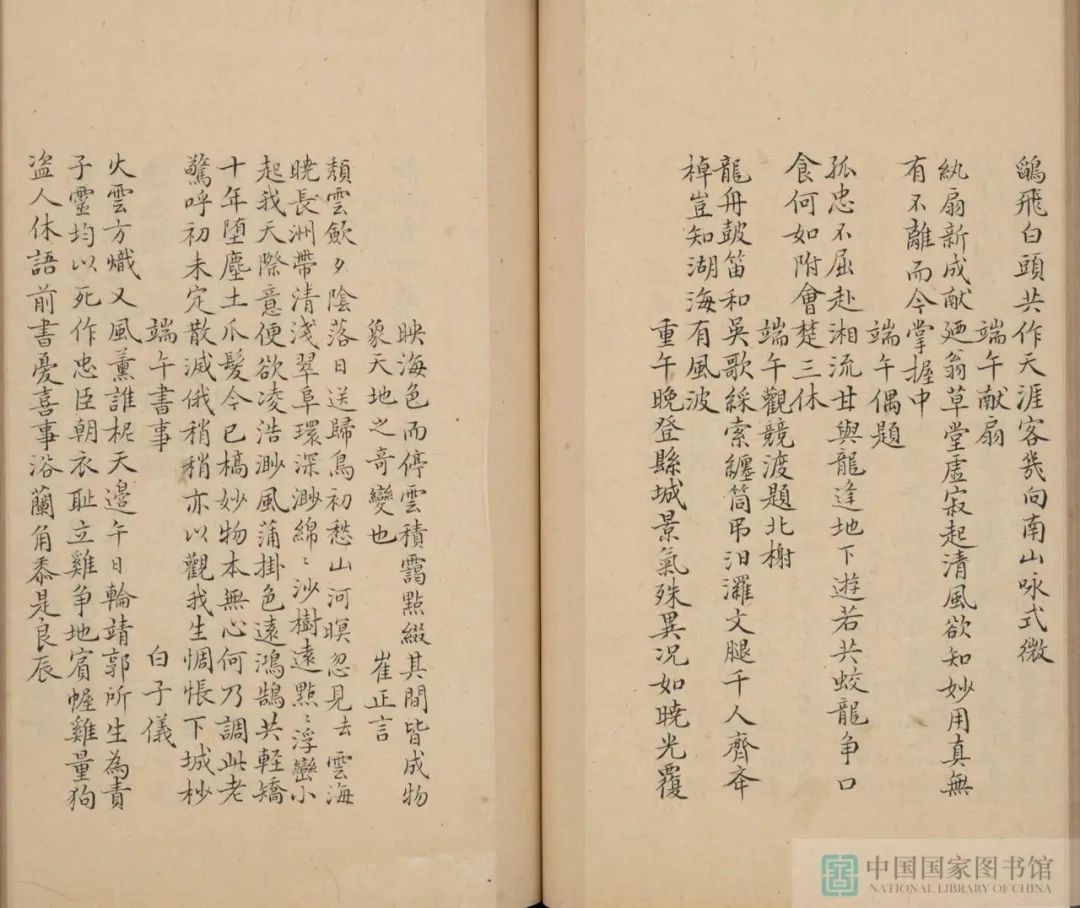 鷁飛白頭共作天涯客幾向南山咏式微
端午献扇
紈扇新成献廼翁草堂虛寂起清風欲知妙用真無
有不離而今掌握中
端午偶題
孤忠不屈赴湘流甘與龍逢地下遊若共蛟龍争口
食何如附會楚三休
端午觀競渡題北榭
龍舟皷笛和吳歌綵索纏筒吊汨灑文腿千人齊奔
棹豈知湖海有風波
重午晚登縣城景氣殊異況如曉光覆
映海色而停雲積靄點綴其間皆成物
象天地之奇變也
崔正言
頹雲歛夕陰落日送歸鳥初愁山河暝忽見去雲海
曉長洲帶清淺翠阜環深渺綿〻沙樹遠點〻浮巒小
起我天際意便欲凌浩渺風蒲掛色遠鴻鵠共輕矯
十年堕塵土爪髮今已槁妙物本無心何乃調此老
驚呼初未定散滅俄稍稍亦以觀我生惆悵下城杪
端午書事
白子儀
火雲方熾又風薰誰柅天邊午日輪靖郭所生為責
子靈均以死作忠臣朝衣耻立雞争地賓幄雞量狗
盗人休語前書憂喜事浴蘭角黍是良辰
中国国家图书馆
NATIONAL LIBRARY OF CHINA